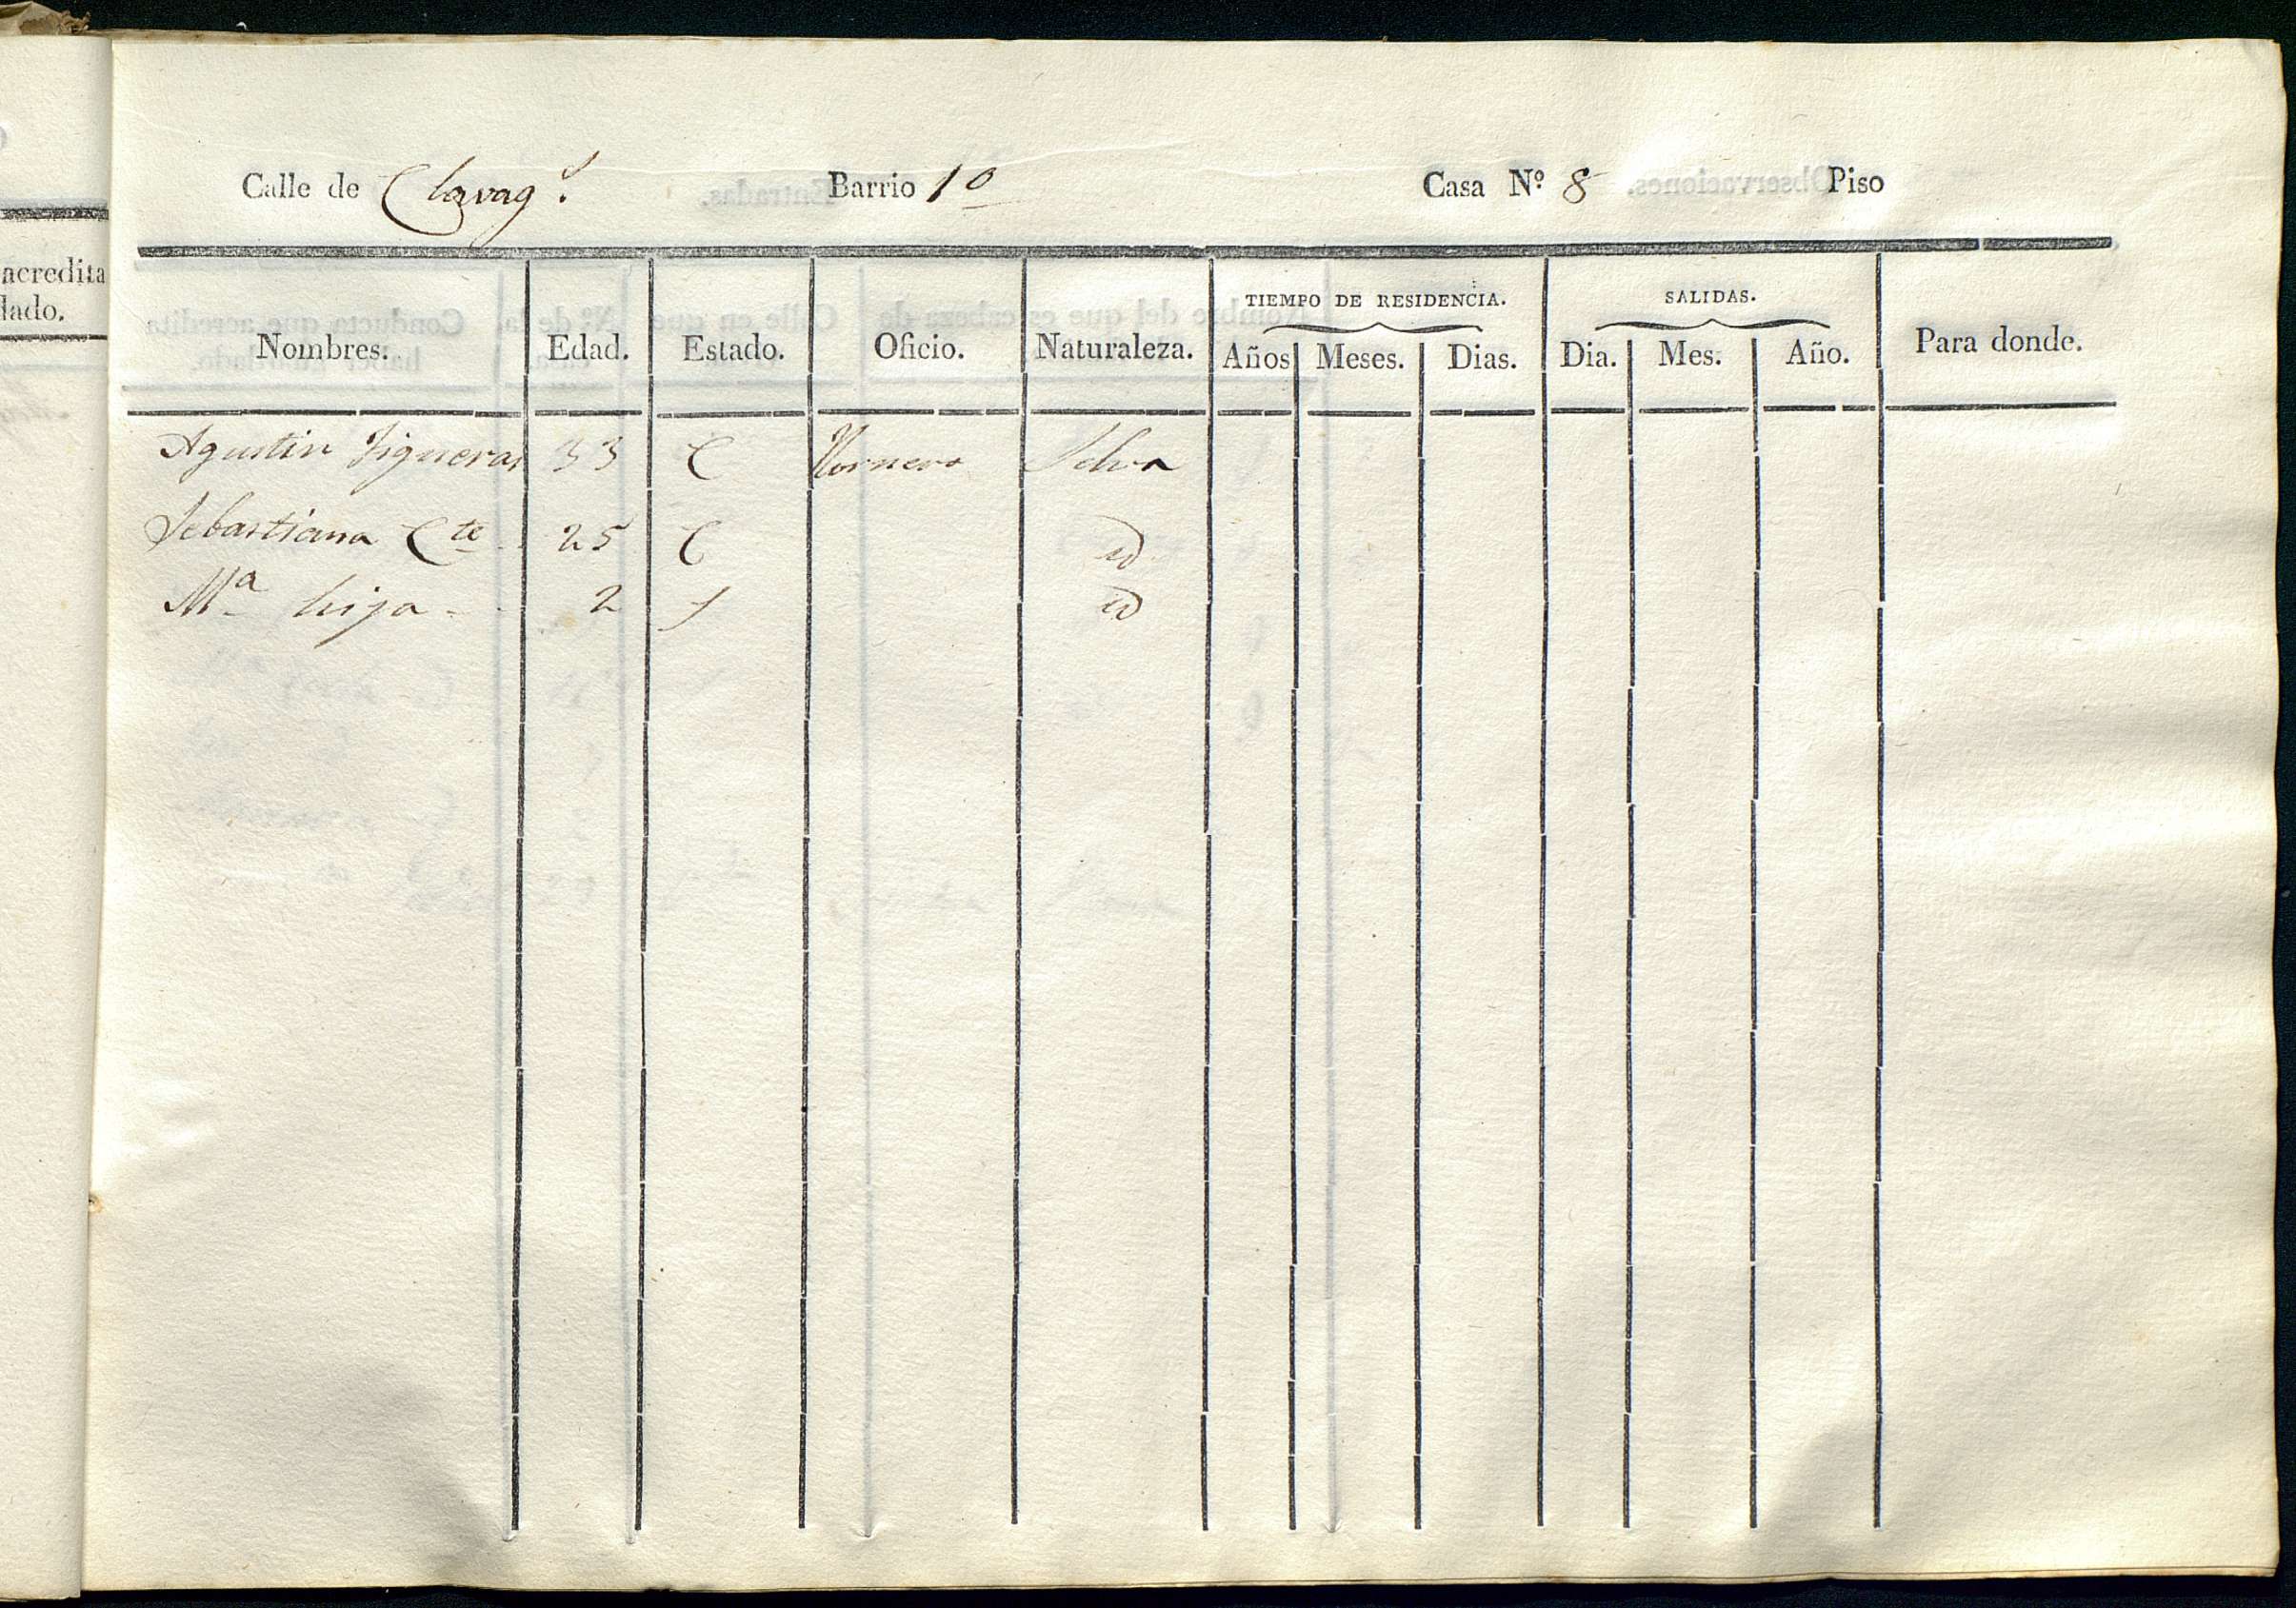 acredita
lado.
Calle de Clavag.l Barrio 1o Casa Nº 8 Piso
Nombres. Edad. Estado. Oficio. Naturaleza. TIEMPO DE RESIDENCIA. Años Meses. Dias. SALIDAS. Dia. Mes. Año. Para donde.
Agustin Figueras 33 C Hornero Selva
Sebastiana Cte 25 C id
Ma hija 2 S id